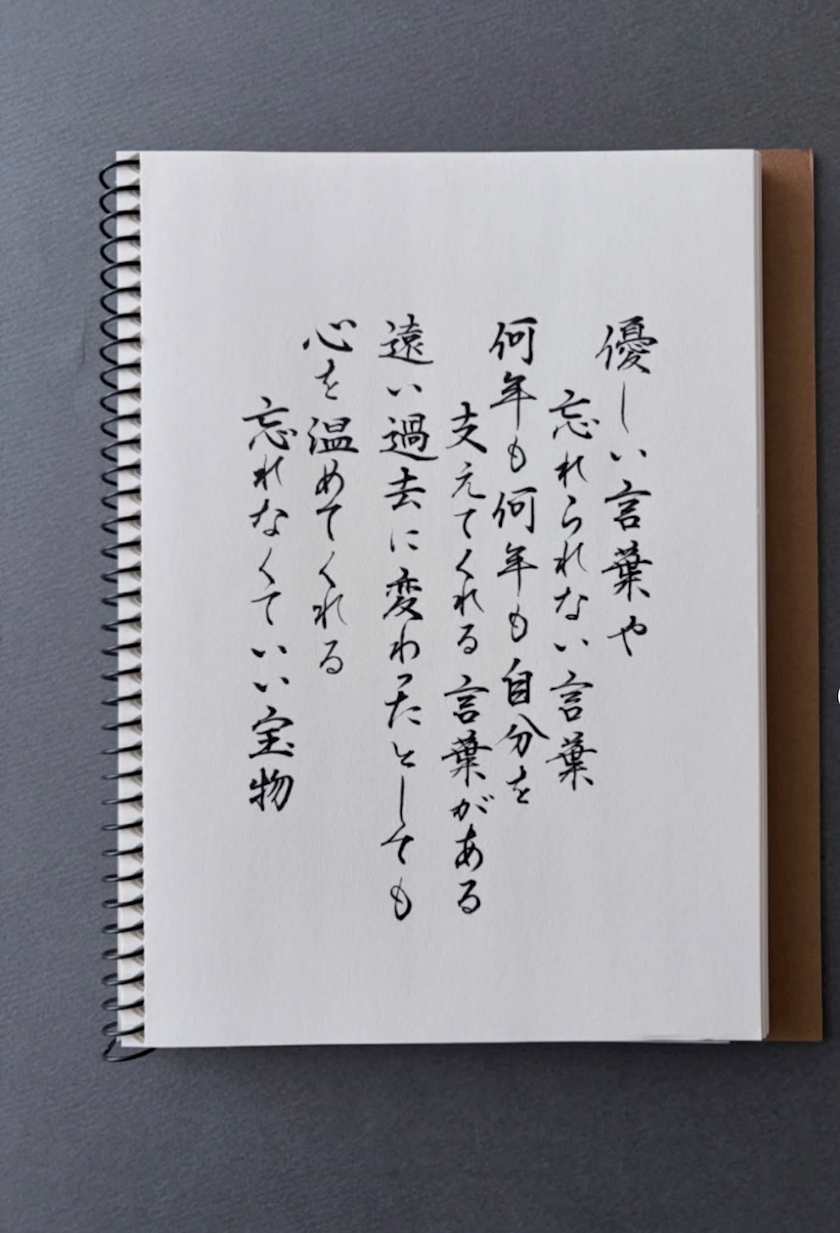 優しい言葉や
忘れられない言葉
何年も何年も自分を
支えてくれる言葉がある
遠い過去に変わったとしても
心を温めてくれる
忘れなくていい宝物